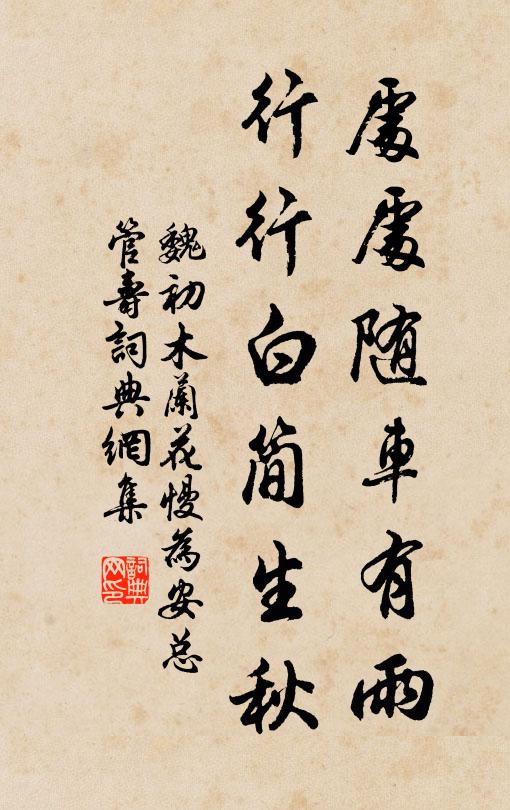 處處随車有雨
行行白簡生秋
魏初木蘭花慢為安总
管壽詞典網集
詞典
网印